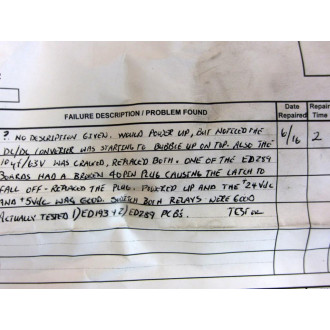 FAILURE DESCRIPTION / PROBLEM FOUND
Date Repaired
Repair Time
?. NO DESCRIPTION GIVEN. WOULD POWER UP, BUT NOTICED THE 6/16 2
DC/DC CONVERTER WAS STARTING TO BUBBLE UP ON TOP. ALSO THE
10µF/63V WAS CRACKED, REPLACED BOTH. ONE OF THE ED289
BOARDS HAD A BROKEN 40PIN PLUG CAUSING THE LATCH TO
FALL OFF - REPLACED THE PLUG. POWERED UP AND THE +24VDC
AND +5VDC WAS GOOD. SWITCH BOTH RELAYS WERE GOOD
ACTUALLY TESTED 1) ED193 + 2) ED289 PCBS.